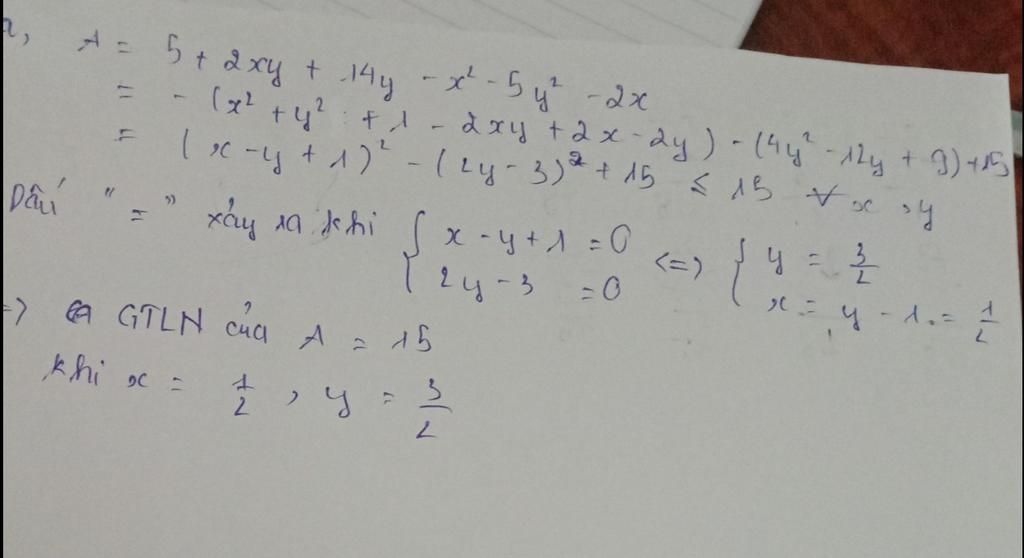 a, A = 5 + 2xy + 14y - x² - 5y² - 2x
= - (x² + y² + 1 - 2xy + 2x - 2y) - (4y² - 12y + 9) + 15
= (x - y + 1)² - (2y - 3)² + 15 ≤ 15 ∀ x, y
Dấu " = " xảy ra khi { x - y + 1 = 0 <=> { y = 3/2
2y - 3 = 0 x = y - 1 = 1/2
=> GTLN của A = 15
khi x = 1/2, y = 3/2